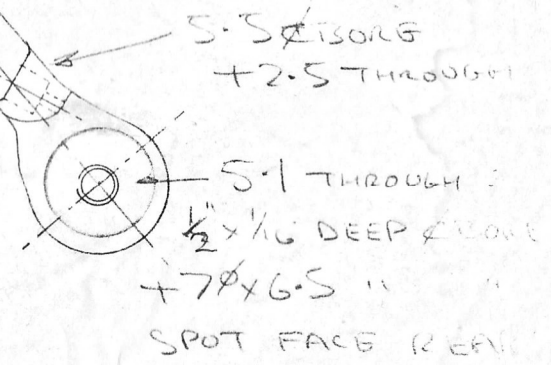 5.5 ¢BORE
+2.5 THROUGH
5.1 THROUGH
½" x 1/16 DEEP ¢BORE
+7ø x 6.5 " "
SPOT FACE REAR